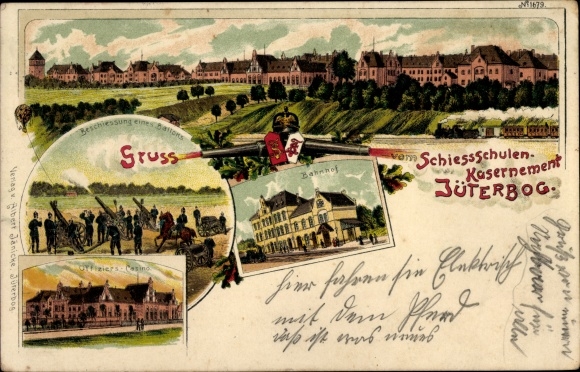 No 1679.
Beschiessung eines Ballons
Gruss vom Schiessschulen-
Kasernement
JÜTERBOG.
Bahnhof
Offiziers-Casino.
Verlag v. Albert Jänicke, Jüterbog.
hier fahren sie Elektrisch
mit dem Pferd
das ist was neues